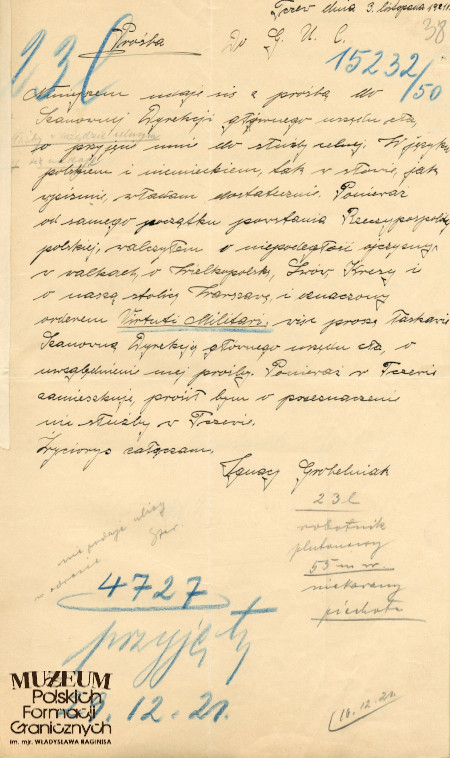 Tczew dnia 3. listopada 1921.
38
Prośba
Do G. U. C.
15232/50
Niniejszem udaje się z prośbą do
Szanownej Dyrekcji głównego urzędu cła,
o przyjęcie mnie do służby celnej. W języku
polskiem i niemieckiem, tak w słowie, jak
w piśmie, władam dostatecznie. Ponieważ
od samego początku powstania Rzeczypospolitej
polskiej, walczyłem o niepodległość ojczyzny,
w walkach, o Wielkopolskę, Lwów, Kresy i
o naszą stolicę Warszawę, i oznaczony
orderem Virtuti Militari, więc proszę łaskawie
Szanowną Dyrekcję głównego urzędu cła, o
uwzględnienie mej prośby. Ponieważ w Tczewie
zamieszkuję, prosił bym o przeznaczenie
mie służby w Tczewie.
Życiorys załączam.
Ignacy Grobelniak
23 l
robotnik
plutonowy
55 m. w.
niekarany
piechota
nie podaje ulicy
w adresie
4727
przyjęty
12.21.
16.12.21.
MUZEUM
Polskich
Formacji
Granicznych
im. mjr. WŁADYSŁAWA RAGINISA